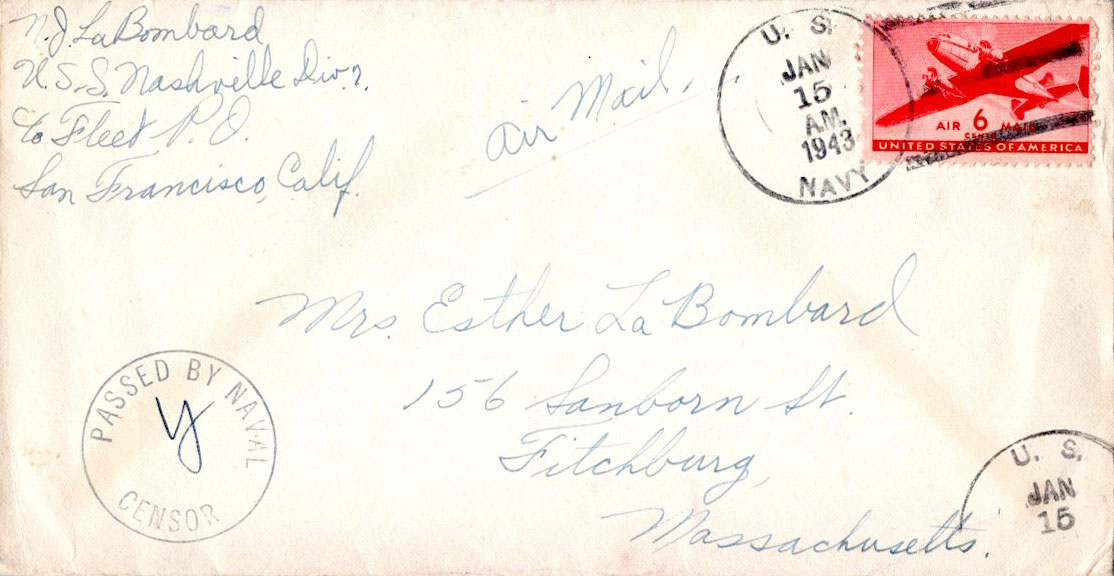 N.J. LaBombard
U.S.S. Nashville Div. 7.
c/o Fleet P.O.
San Francisco, Calif.
air Mail.
U. S.
JAN
15
A.M.
1943
NAVY
AIR 6 MAIL
CENTS
UNITED STATES OF AMERICA
Mrs. Esther La Bombard
156 Sanborn St.
Fitchburg,
Massachusetts.
PASSED BY NAVAL
y
CENSOR
U. S.
JAN
15